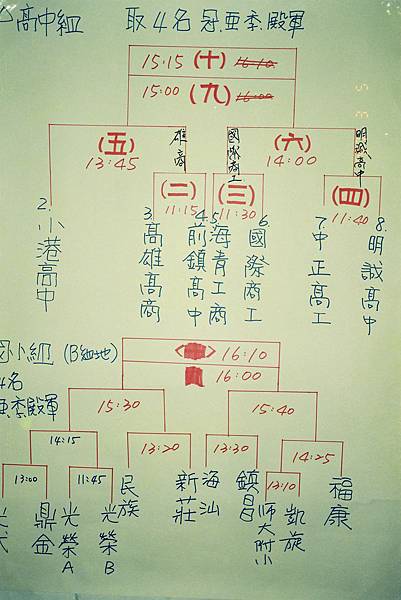 高中組 取4名 冠.亞.季.殿軍
15:15 (十) 16:10
15:00 (九) 16:00
(五) 雄商 國際商工 (六) 明誠高中
13:45 14:00
(二) (三) (四)
11:15 11:30 11:40
2. 小港高中
3. 高雄高商
4. 前鎮高中
5. 海青工商
6. 國際商工
7. 中正高工
8. 明誠高中
國小組 (B場地)
4名
亞.季.殿軍
16:10
16:00
15:30 15:40
14:15 13:20 13:30 14:25
13:00 11:45 13:10
鼎金
光榮A
光榮B
民族
新莊
海汕
鎮昌
師大附小
凱旋
福康